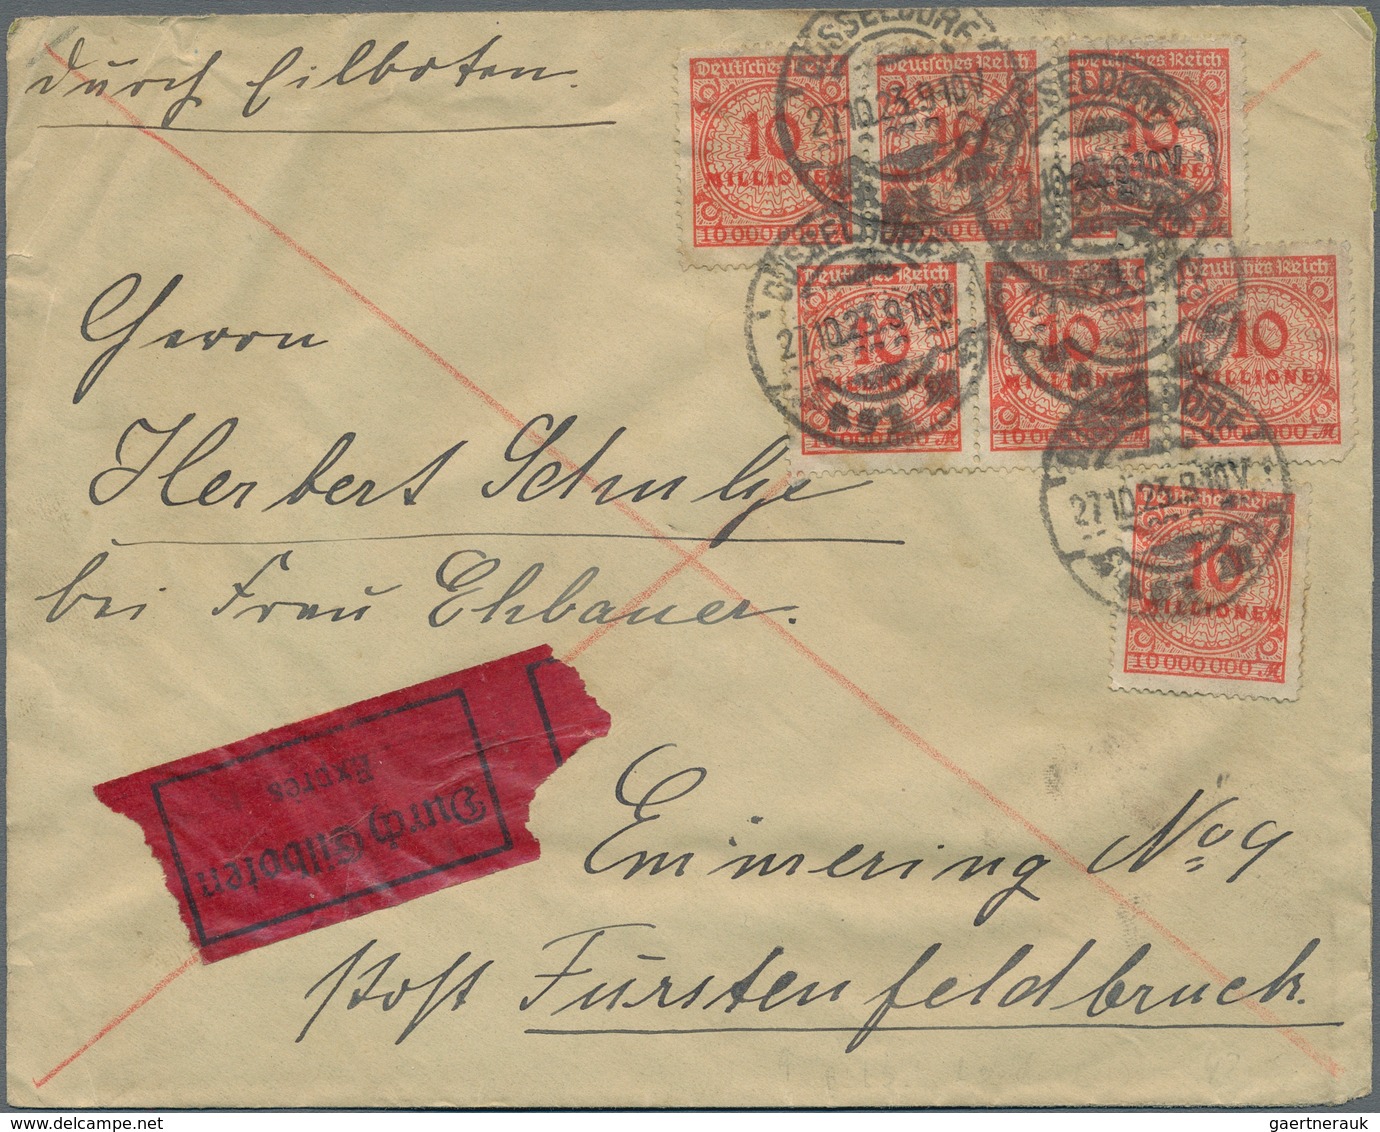 durch Eilboten.
Deutsches Reich
10
MILLIONEN
10 000 000 M
Deutsches Reich
10
MILLIONEN
10 000 000 M
Deutsches Reich
10
MILLIONEN
DÜSSELDORF
27.10.23.9-10V
DÜSSELDORF
Deutsches Reich
10
MILLIONEN
10 000 000 M
Deutsches Reich
10
MILLIONEN
Deutsches Reich
10
MILLIONEN
10 000 000 M
DÜSSELDORF
27.10.23.9-10V
27.10.23.9-10V
Deutsches Reich
10
MILLIONEN
10 000 000 M
Herrn
Herbert Schulze
bei Frau Ehbauer.
Durch Eilboten
Exprès
Emmering No 9
Post Fürstenfeldbruck.
gaertnerauk